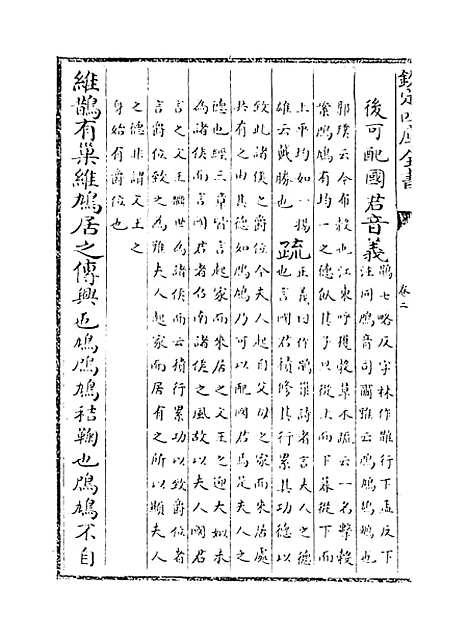 欽定四庫全書
卷二
後可配國君音義
鵲七略反字林作䧿行下孟反下
注同鳲音司爾雅云鳲鳩鴶鵴也
郭璞云今布穀也江東呼穫穀草木疏云一名擊穀
案鳲鳩有均一之德飼其子旦從上而下暮從下而
上平均如一揚
雄云戴勝也
疏
正義曰作鵲巢詩者言夫人之德
也言國君積修其行累其功德以
致此諸侯之爵位今夫人起自父母之家而來居處
共有之由其德如鳲鳩乃可以配國君焉是夫人之
德也經三章皆言起家而來居之文王之迎大姒未
為諸侯而言國君者召南諸侯之風故以夫人國君
言之文王繼世為諸侯而云積行累功以致爵位者
言爵位致之為難夫人起家而居有之所以顯夫人
之德非謂文王之
身始有爵位也
維鵲有巢維鳩居之傳興也鳩鳲鳩秸鞠也鳲鳩不自